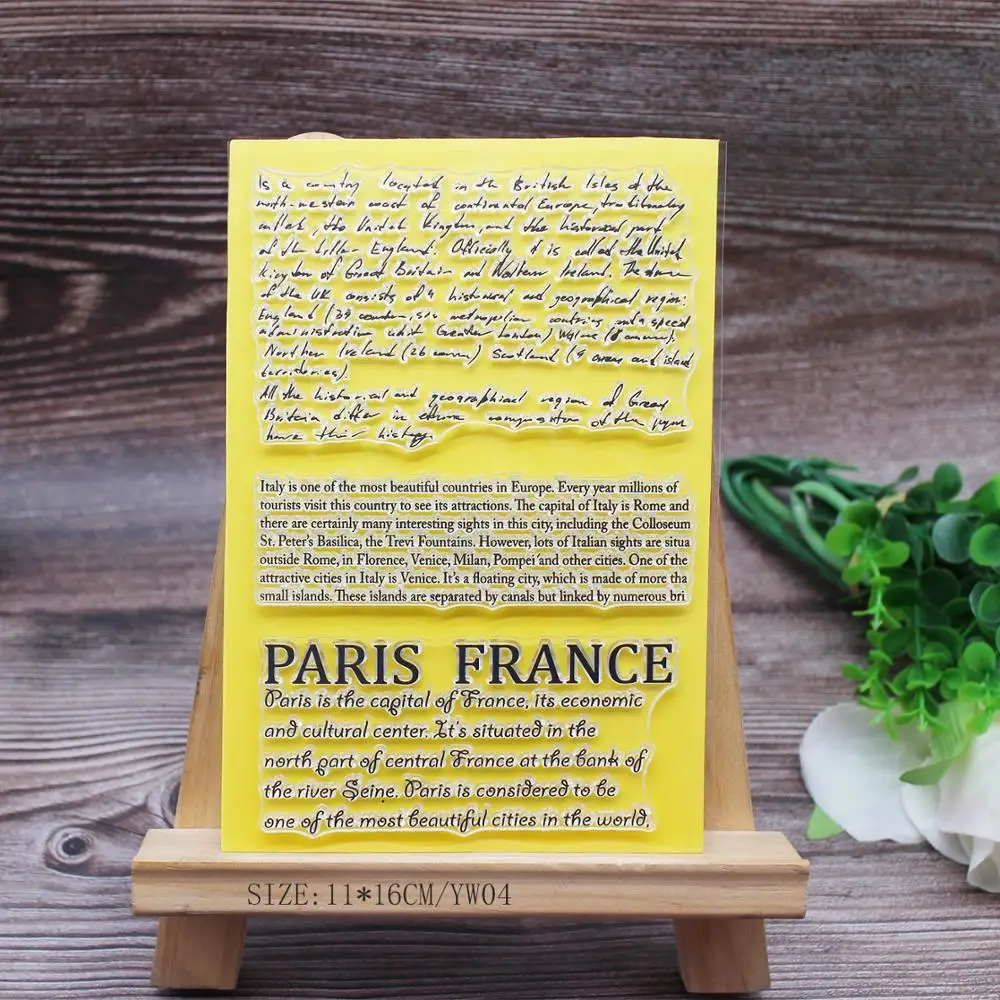 Is a country located in the British Isles of the
north-western coast of continental Europe, traditionaly
called, the United Kingdom, and the historical part
of the England. Officially it is called the United
Kingdom of Great Britain and Northern Ireland. The
of the UK consists of 4 historical and geographical region:
England (39 six metropolian and a speed
administrative unit Greater London) Wales
Northern Ireland (26 Scotland (9 and island
territories).
All the historical and geographical region of Great
Britain differ in of the
have their history
Italy is one of the most beautiful countries in Europe. Every year millions of
tourists visit this country to see its attractions. The capital of Italy is Rome and
there are certainly many interesting sights in this city, including the Colloseum
St. Peter's Basilica, the Trevi Fountains. However, lots of Italian sights are situa
outside Rome, in Florence, Venice, Milan, Pompei and other cities. One of the
attractive cities in Italy is Venice. It's a floating city, which is made of more tha
small islands. These islands are separated by canals but linked by numerous bri
PARIS FRANCE
Paris is the capital of France, its economic
and cultural center. It's situated in the
north part of central France at the bank of
the river Seine. Paris is considered to be
one of the most beautiful cities in the world.
SIZE:11*16CM/YW04